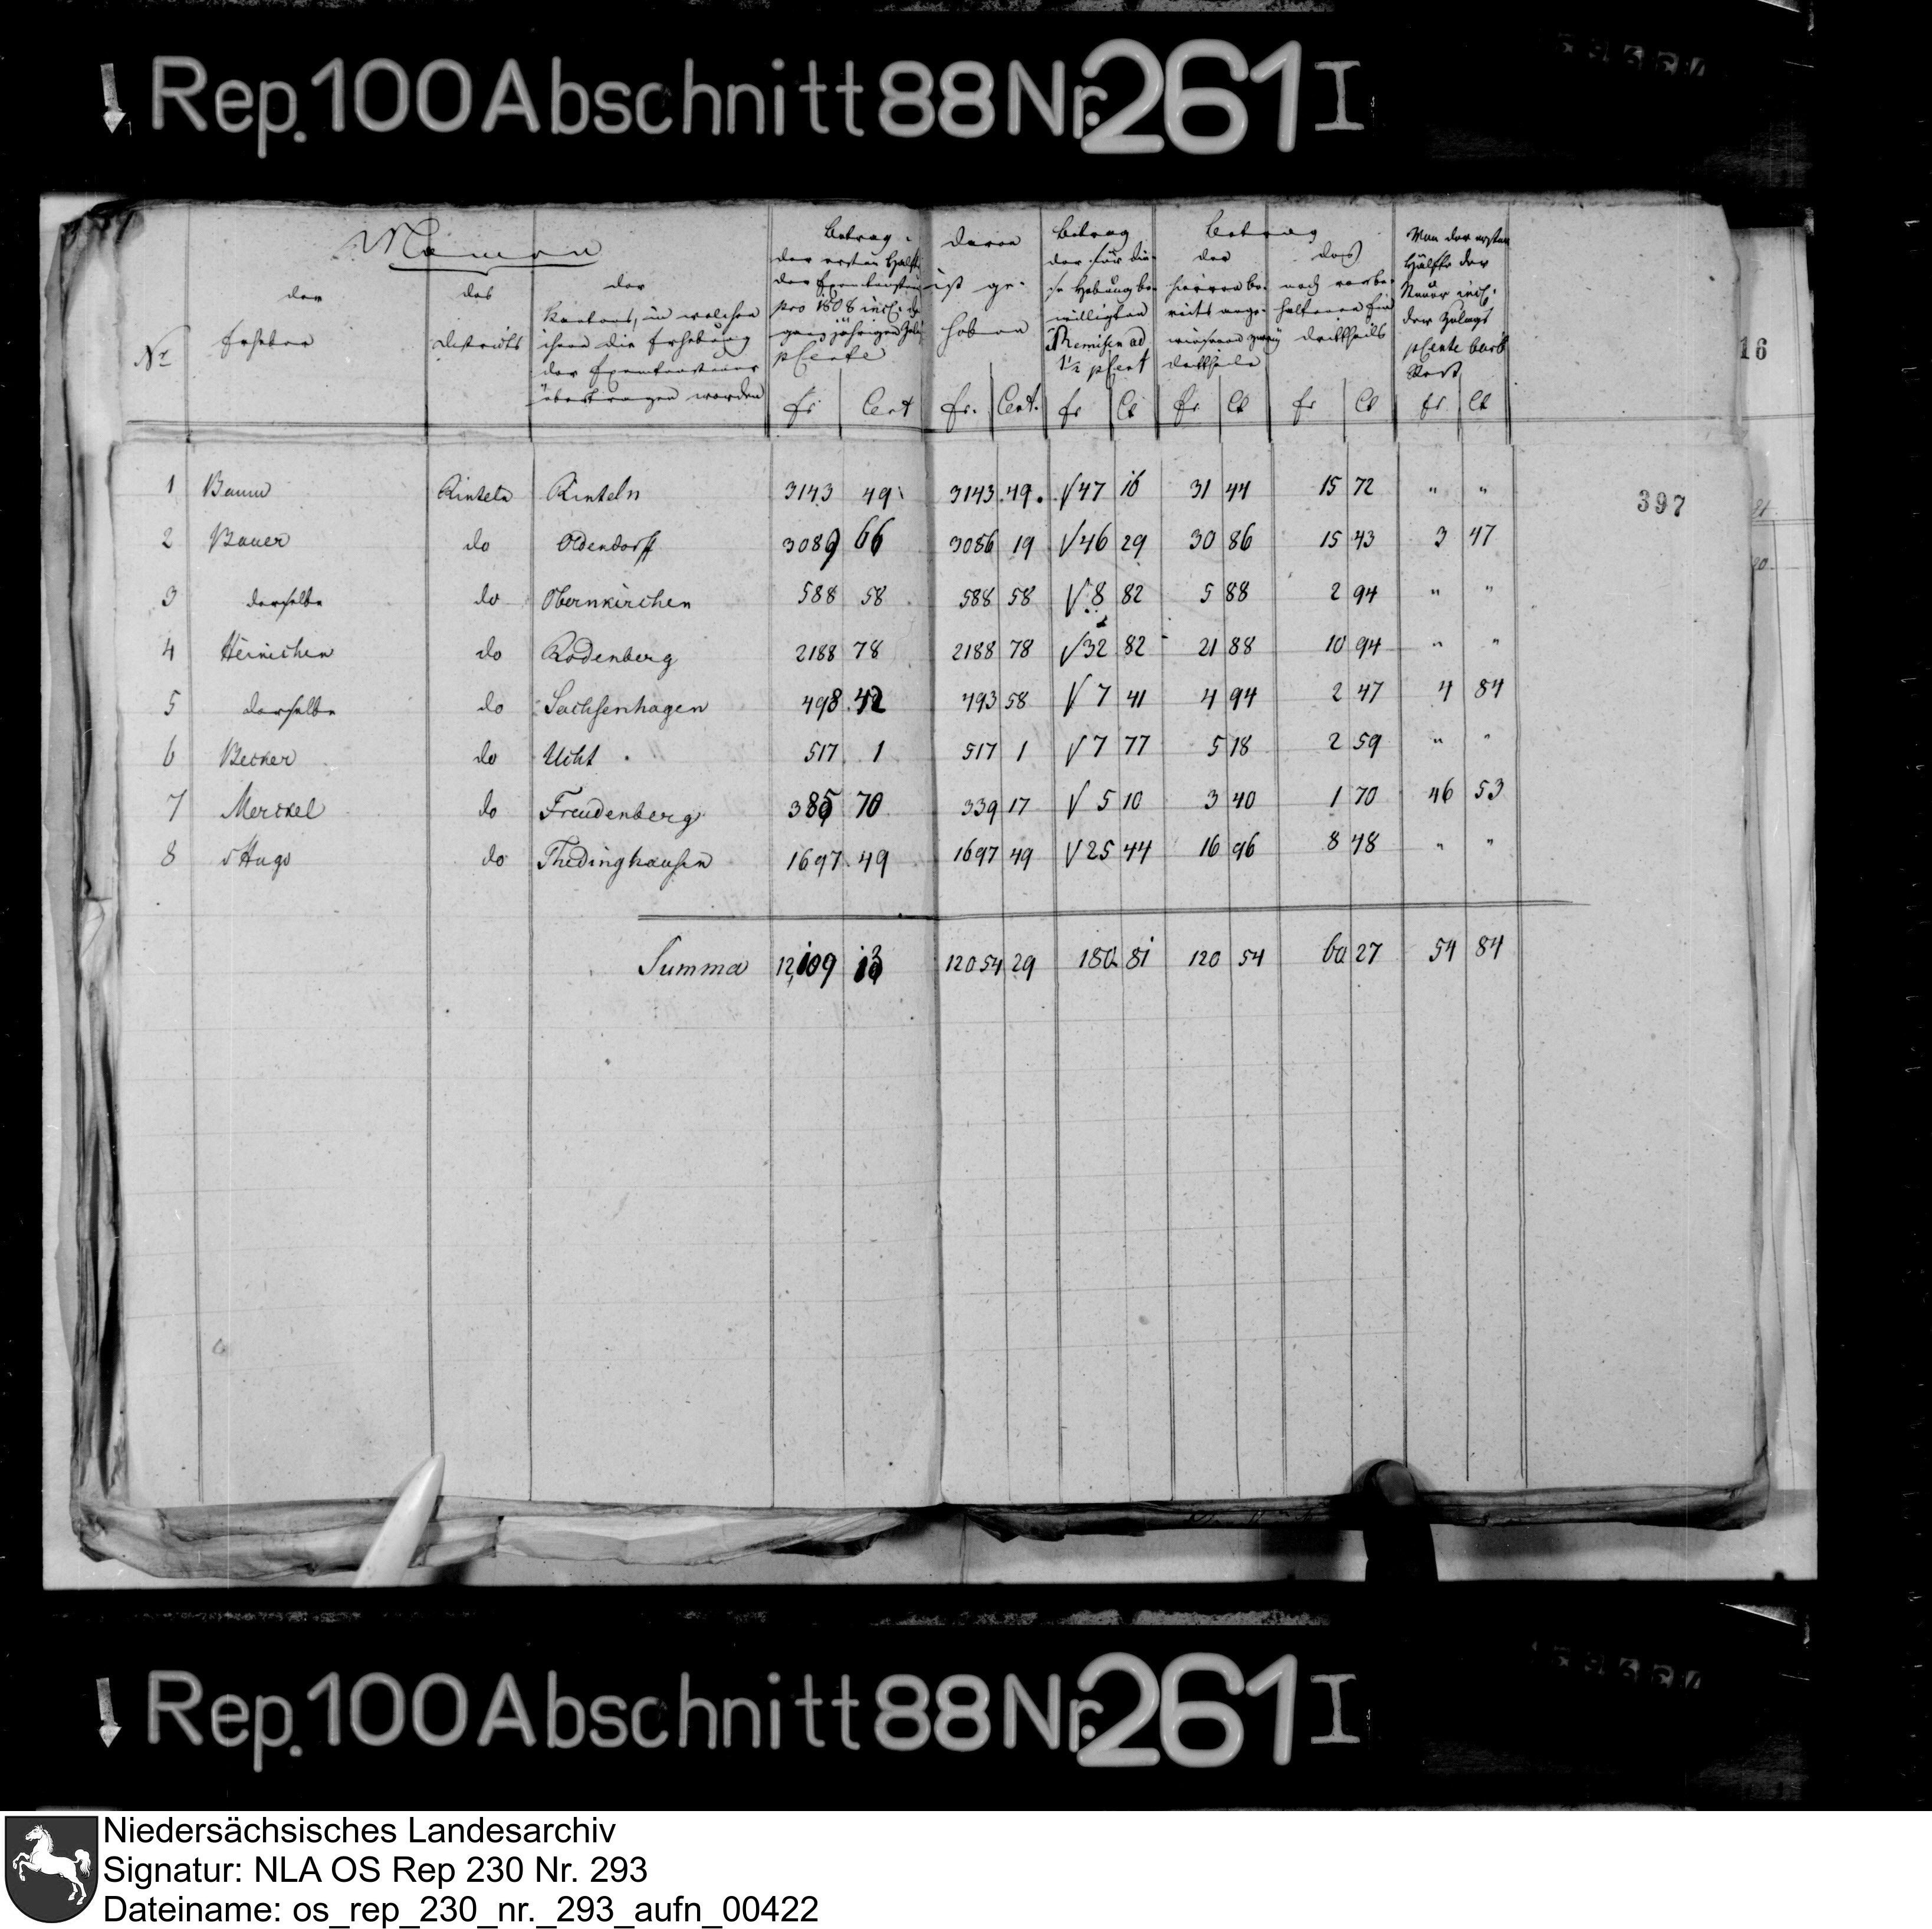 Rep. 100 Abschnitt 88 Nr. 261 I
16
397
Namen
der Erheber
des Districts
der Kantons, in welchen
ihnen die Erhebung
der Exemtensteuer
übertragen worden
Nr
Betrag
der ersten Hälfte
der Exemtensteuer
pro 1808 incl. der
ganzjährigen Zulags
pCente
fr Cent
Davon
ist ge-
hoben
fr. Cent.
Betrag
der für die-
se Hebung be-
willigten
Remisen ad
1½ pCent
fr Ct
Betrag
der
hiervon be-
reits ange-
wiesenen zwey
drittheile
fr Ct
des
noch vorbe-
haltenen Ein
drittheils
fr Ct
Von der ersten
Hälfte der
Steuer incl.
der Zulags
pCente bleibt
Rest
fr Ct
1 Baum Rinteln Rinteln 3143 49 3143 49 47 16 31 44 15 72 " "
2 Bauer do Oldendorff 3089 66 3086 19 46 29 30 86 15 43 3 47
3 derselbe do Obernkirchen 588 58 588 58 8 82 5 88 2 94 " "
4 Heinichen do Rodenberg 2188 78 2188 78 32 82 21 88 10 94 " "
5 derselbe do Sachsenhagen 498 42 493 58 7 41 4 94 2 47 4 84
6 Becker do Ucht 517 1 517 1 7 77 5 18 2 59 " "
7 Merckel do Freudenberg 385 70 339 17 5 10 3 40 1 70 46 53
8 v Hugo do Thedinghausen 1697 49 1697 49 25 44 16 96 8 48 " "
Summa 12109 13 12054 29 180 81 120 54 60 27 54 84
Rep. 100 Abschnitt 88 Nr. 261 I
Niedersächsisches Landesarchiv
Signatur: NLA OS Rep 230 Nr. 293
Dateiname: os_rep_230_nr._293_aufn_00422